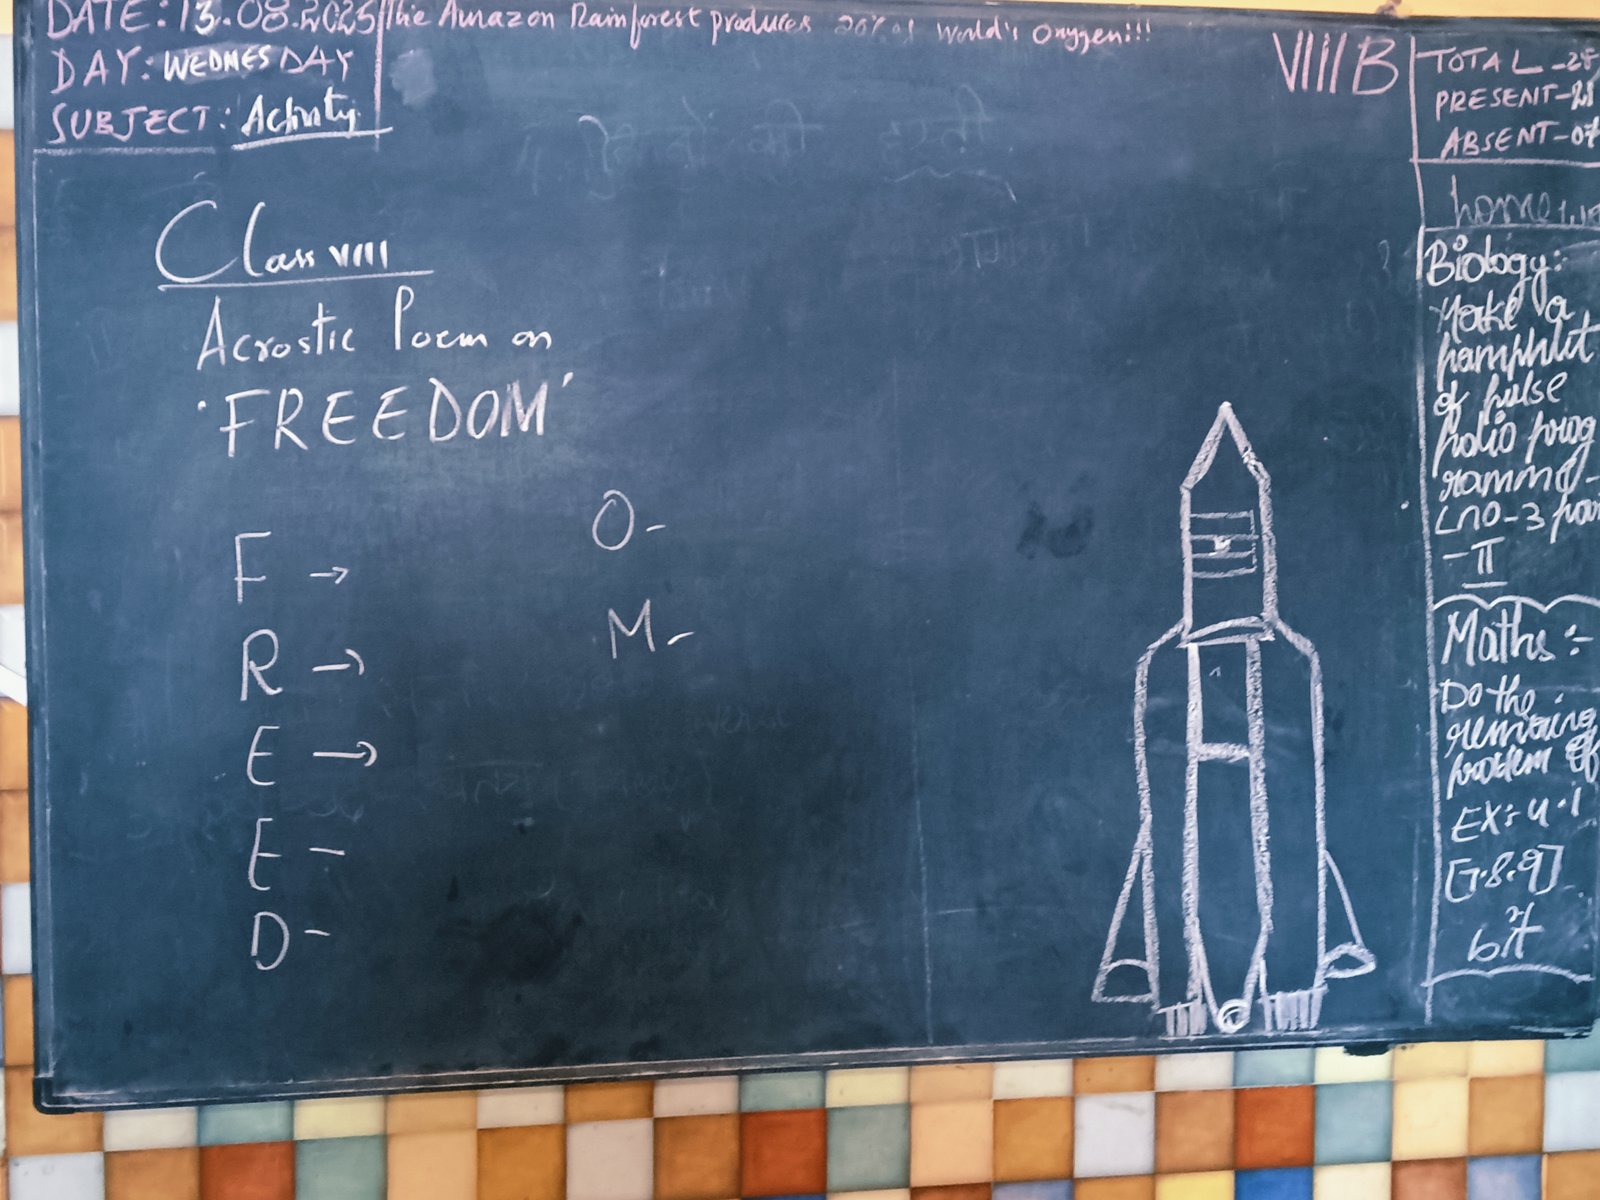 DATE: 13.08.2025
The Amazon Rainforest produces 20% of World's Oxygen!!!
DAY: WEDNESDAY
SUBJECT: Activity
VIII B
TOTAL -28
PRESENT-21
ABSENT-07
Class VIII
Acrostic Poem on
'FREEDOM'
F →
R →
E →
E -
D -
O -
M -
home
Biology:-
Make a
pamphlet
of pulse
polio prog
ramme-
LNO-3
-II
Maths:-
Do the
remaining
problem of
EX:-4.1
[7.8.9]